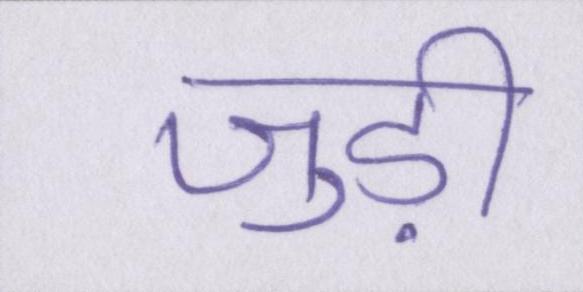 जुड़ी